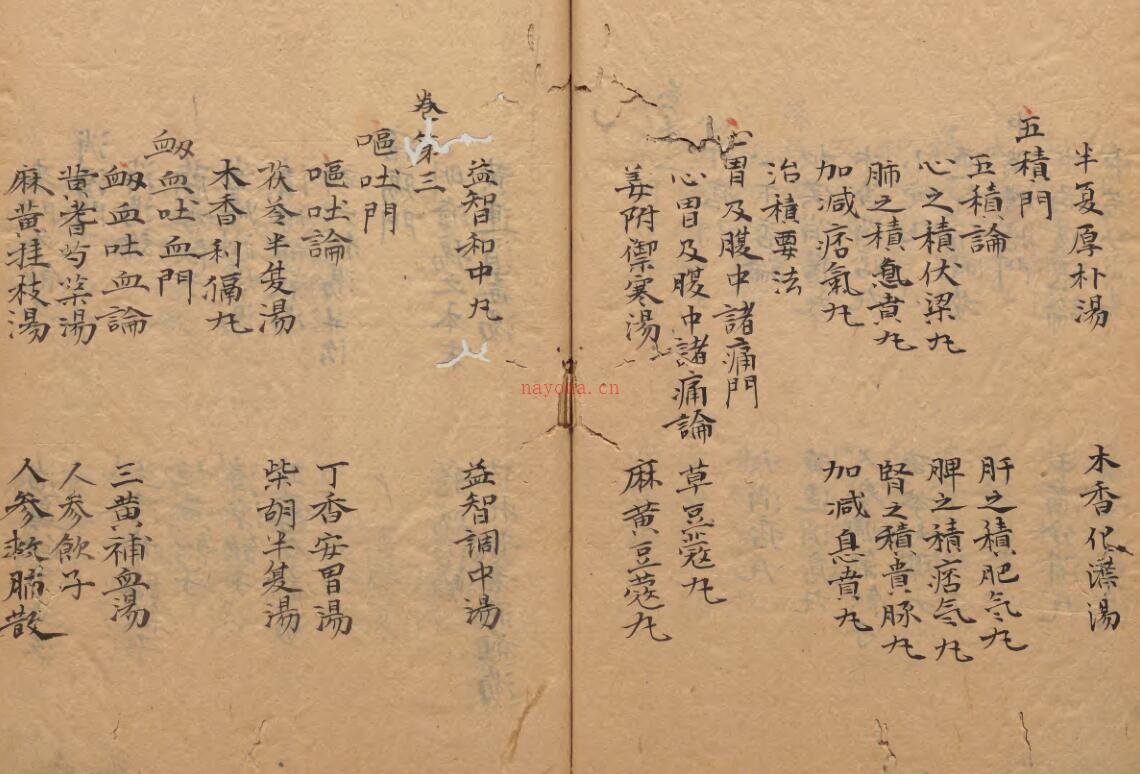 半夏厚朴湯　木香化滯湯
五積門
五積論　肝之積肥氣丸
心之積伏梁丸　脾之積痞氣丸
肺之積息賁丸　腎之積賁豚丸
加減痞氣丸　加減息賁丸
治積要法
心胃及腹中諸痛門
心胃及腹中諸痛論　草豆蔻丸
姜附禦寒湯　麻黄豆蔻丸
益智和中丸　益智調中湯
卷第三
嘔吐門
嘔吐論　丁香安胃湯
茯苓半夏湯　柴胡半夏湯
木香利膈丸
衂血吐血門
衂血吐血論　三黄補血湯
黄耆芍藥湯　人參飲子
麻黄桂枝湯　人參救肺散
nayona.cn